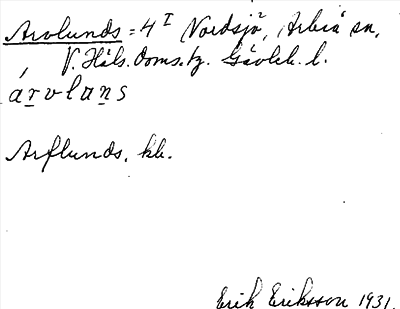 Arvlunds = 4 I Nordsjö, Arbrå sn,
V. Häls. doms. tz. Gävleb. l.
árvlans
Arflunds, kb.
Erik Eriksson 1931.